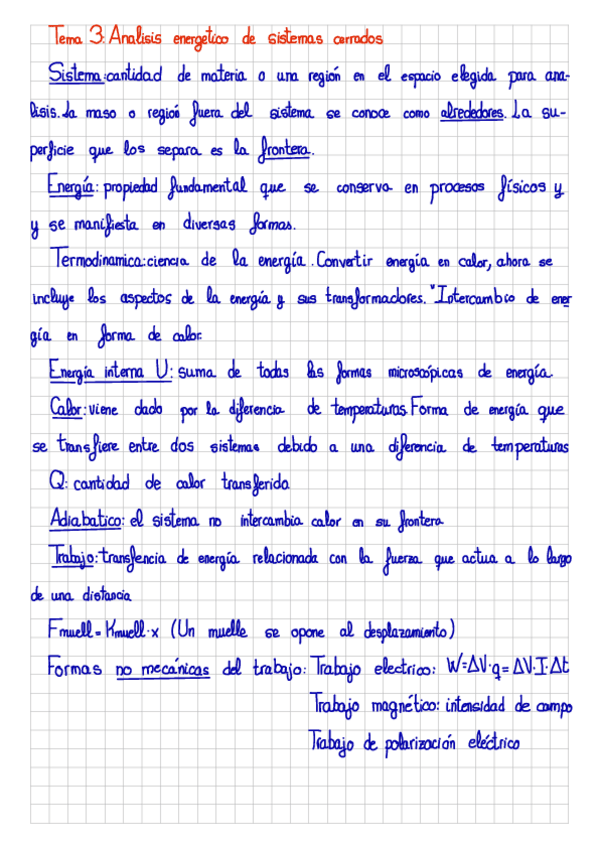 Tema 3: Analisis energetico de sistemas cerrados
Sistema: cantidad de materia o una región en el espacio elegida para ana-
lisis. La masa o región fuera del sistema se conoce como alrededores. La su-
perficie que los separa es la frontera.
Energía: propiedad fundamental que se conserva en procesos físicos y
y se manifiesta en diversas formas.
Termodinamica: ciencia de la energía. Convertir energía en calor, ahora se
incluye los aspectos de la energía y sus transformadores. "Intercambio de ener
gía en forma de calor.
Energía interna U: suma de todas las formas microscópicas de energía.
Calor: viene dado por la diferencia de temperaturas. Forma de energía que
se transfiere entre dos sistemas debido a una diferencia de temperaturas
Q: cantidad de calor transferida
Adiabatico: el sistema no intercambia calor en su frontera
Trabajo: transfencia de energía relacionada con la fuerza que actua a lo largo
de una distancia
Fmuell = Kmuell · x (Un muelle se opone al desplazamiento)
Formas no mecánicas del trabajo: Trabajo electrico: W=ΔV·q = ΔV·I·Δt
Trabajo magnético: intensidad de campo
Trabajo de polarización eléctrico